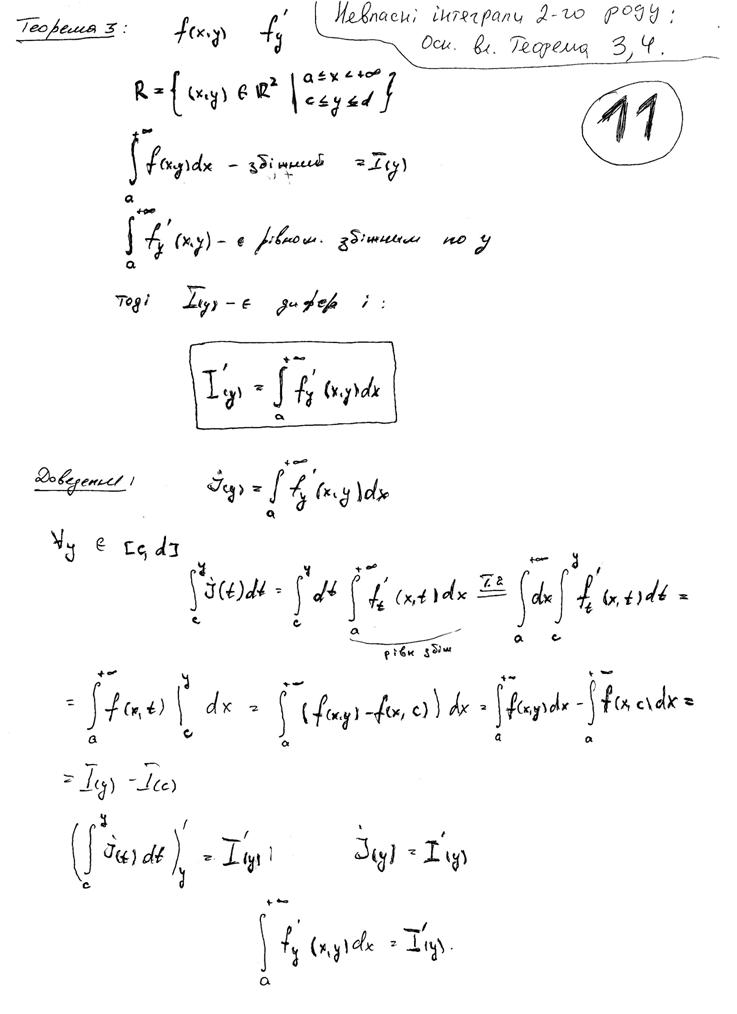 Невласні інтеграли 2-го роду:
Осн. вл. Теорема 3,4.
11
Теорема 3: f(x,y) f'_y
R = { (x,y) ∈ ℝ² | a ≤ x < +∞, c ≤ y ≤ d }
∫_a^{+∞} f(x,y)dx – збіжний = I(y)
∫_a^{+∞} f'_y (x,y) – є рівном. збіжним по y
тоді I(y) – є дифер і:
I'(y) = ∫_a^{+∞} f'_y (x,y)dx
Доведення: J(y) = ∫_a^{+∞} f'_y (x,y)dx
∀y ∈ [c,d]
∫_c^y J(t)dt = ∫_c^y dt ∫_a^{+∞} f'_t (x,t)dx =^{Т.2} ∫_a^{+∞} dx ∫_c^y f'_t (x,t)dt =
рівн збіж
= ∫_a^{+∞} f(x,t) |_c^y dx = ∫_a^{+∞} (f(x,y) – f(x,c)) dx = ∫_a^{+∞} f(x,y)dx – ∫_a^{+∞} f(x,c)dx =
= I(y) – I(c)
(∫_c^y J(t)dt)'_y = I'(y); J(y) = I'(y)
∫_a^{+∞} f'_y (x,y)dx = I'(y).